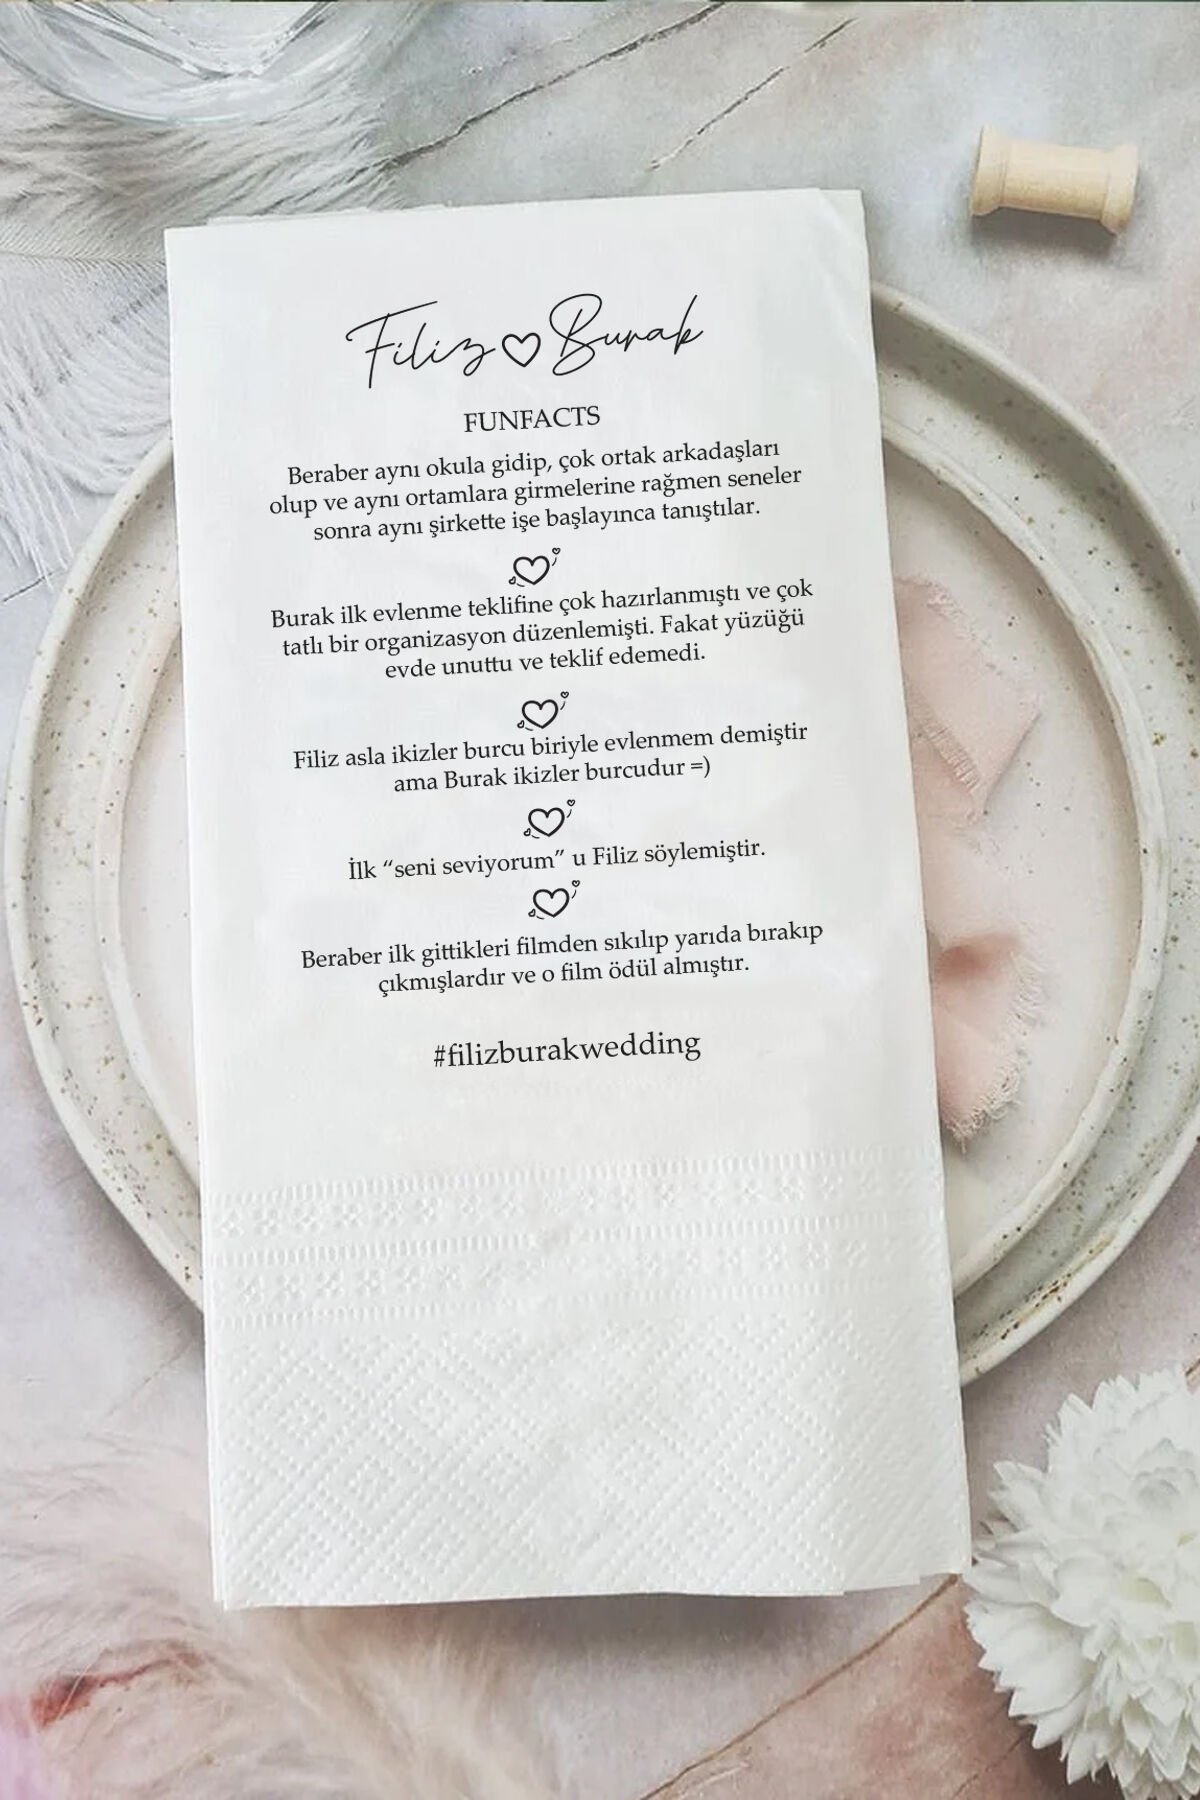 Filiz Burak
FUNFACTS
Beraber aynı okula gidip, çok ortak arkadaşları
olup ve aynı ortamlara girmelerine rağmen seneler
sonra aynı şirkette işe başlayınca tanıştılar.
Burak ilk evlenme teklifine çok hazırlanmıştı ve çok
tatlı bir organizasyon düzenlemişti. Fakat yüzüğü
evde unuttu ve teklif edemedi.
Filiz asla ikizler burcu biriyle evlenmem demiştir
ama Burak ikizler burcudur =)
İlk “seni seviyorum” u Filiz söylemiştir.
Beraber ilk gittikleri filmden sıkılıp yarıda bırakıp
çıkmışlardır ve o film ödül almıştır.
#filizburakwedding